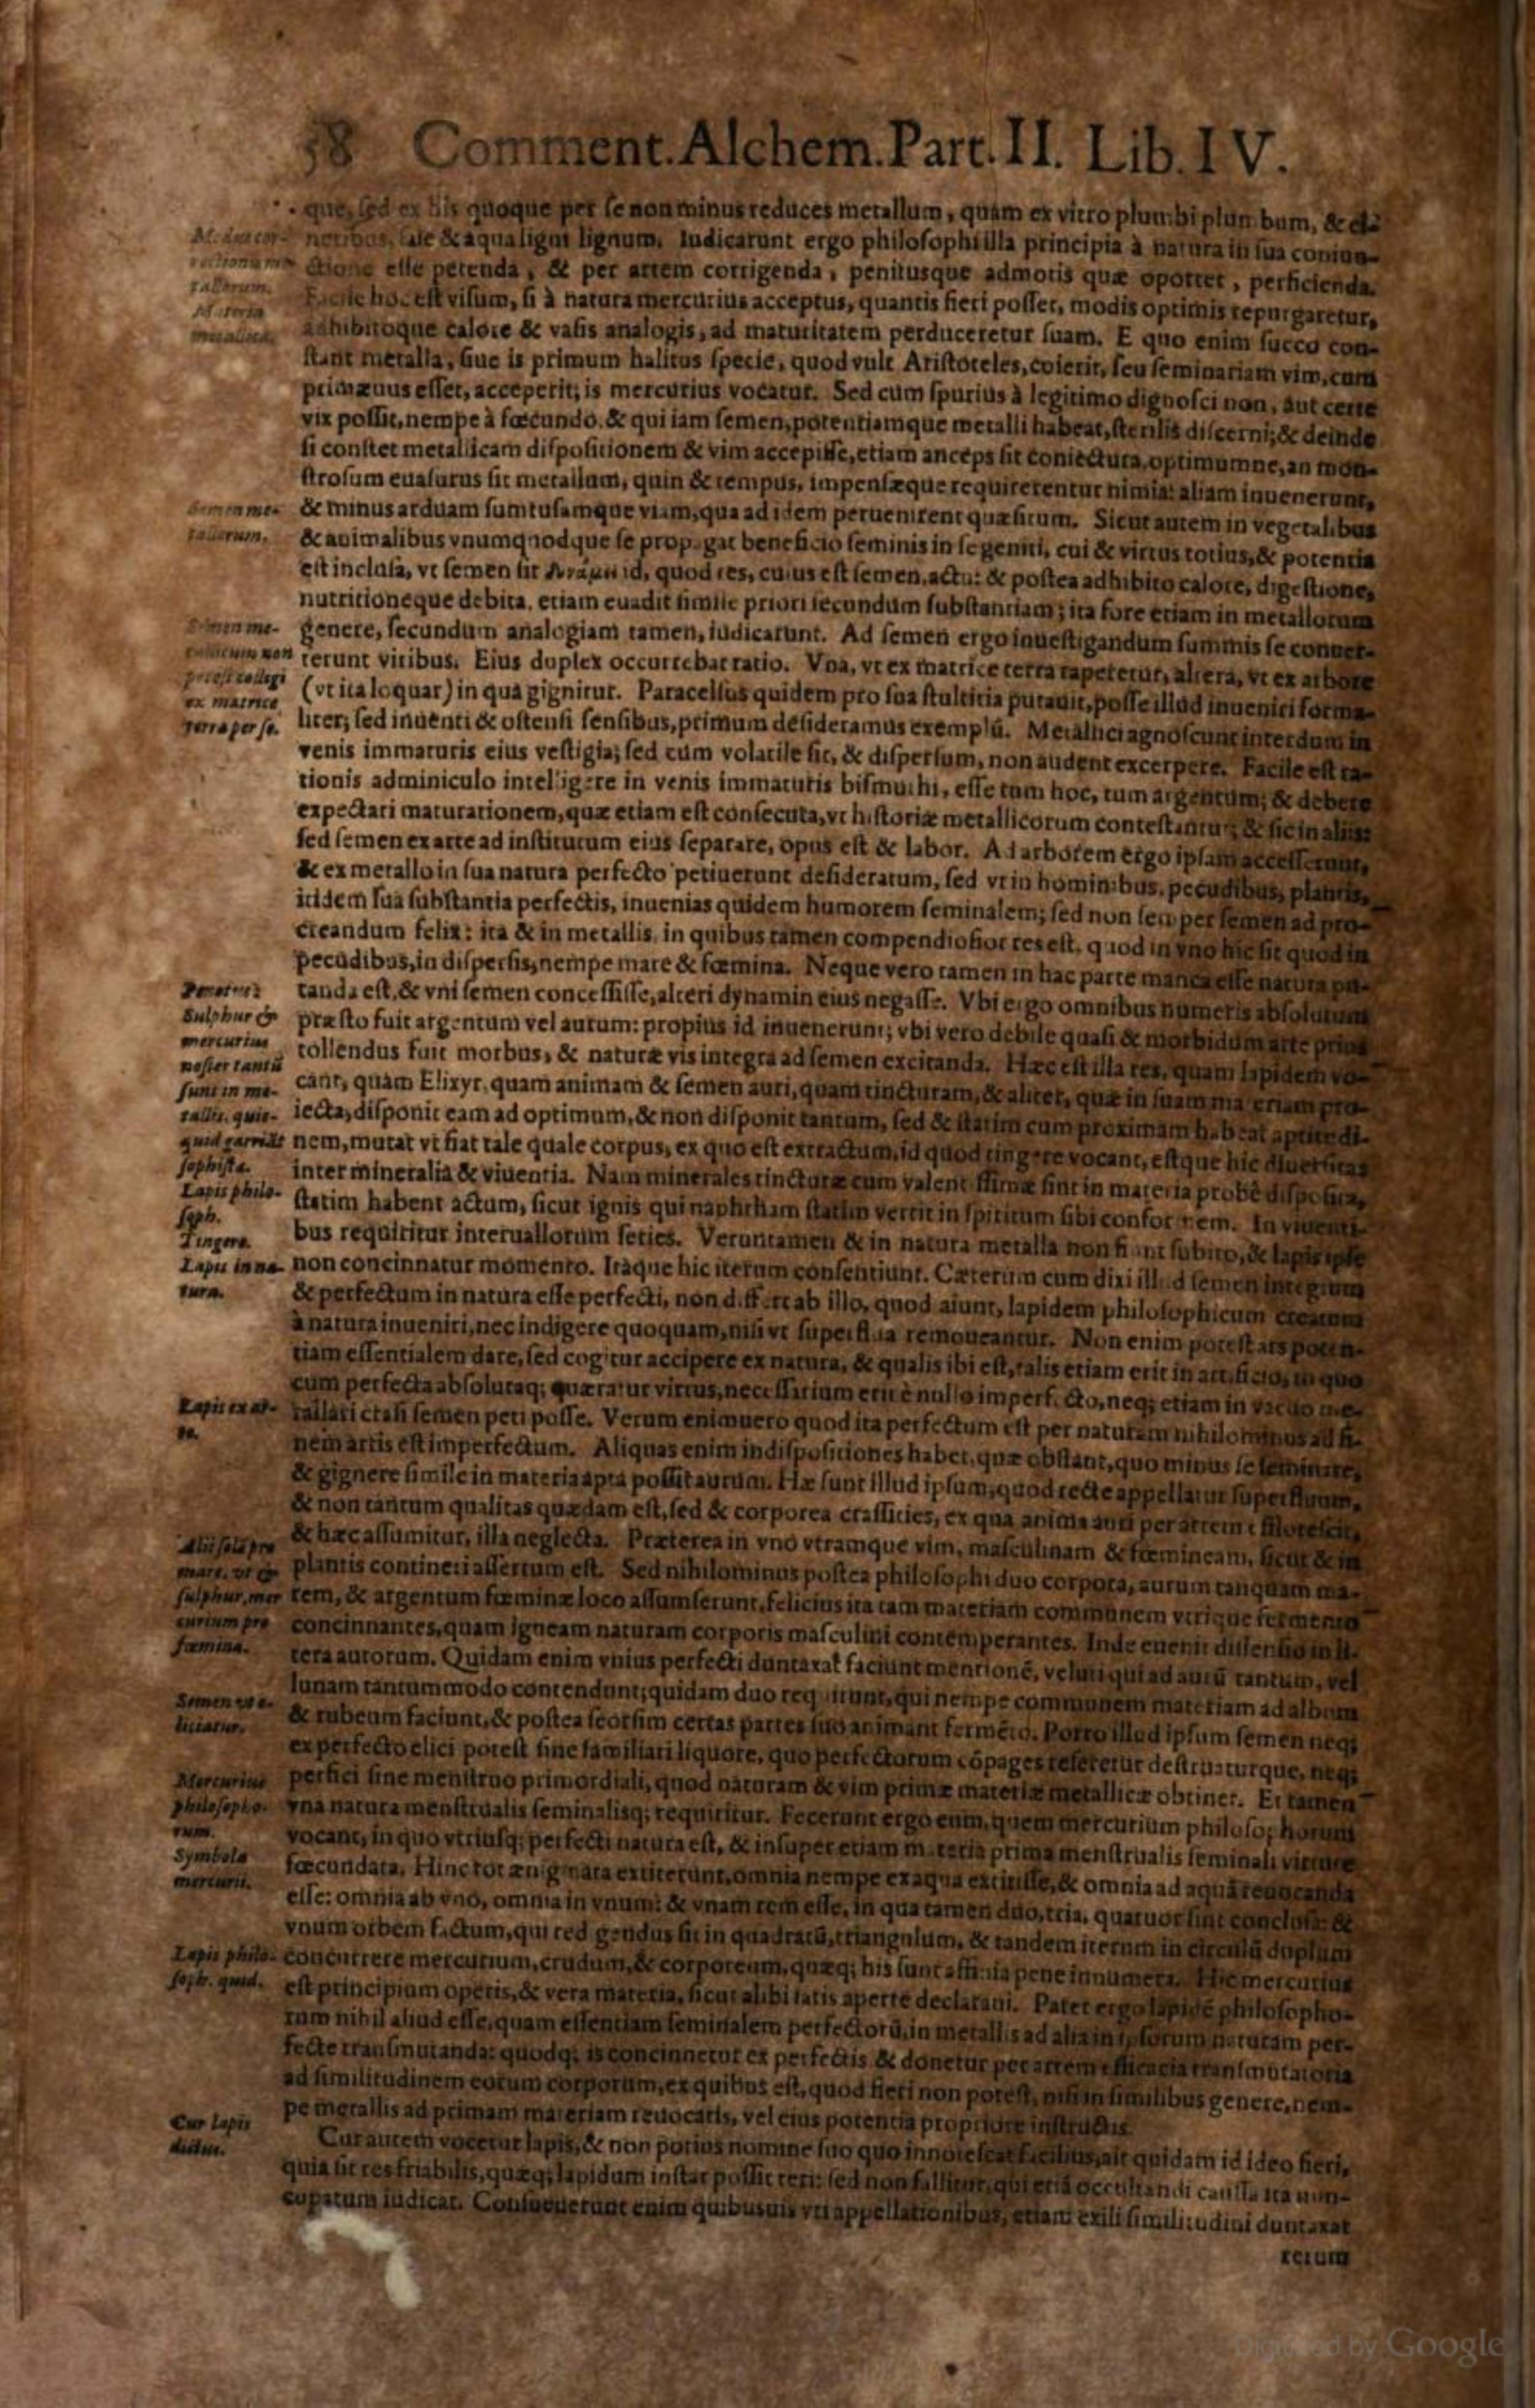 58 Comment. Alchem. Part. II. Lib. IV.
que, sed ex his quoque per se non minus reduces metallum, quàm ex vitro plumbi plumbum, & ci-
neribus, sale & aqua ligni lignum. Iudicarunt ergo philosophi illa principia à natura in sua coniun-
ctione esse petenda, & per artem corrigenda, penitusque admotis quæ oportet, perficienda.
Facile hoc est visum, si à natura mercurius acceptus, quantis fieri posset, modis optimis repurgaretur,
adhibitoque calore & vasis analogis, ad maturitatem perduceretur suam. E quo enim succo con-
stant metalla, siue is primum halitus specie, quod vult Aristoteles, coierit, seu seminariam vim, cum
primæuus esset, acceperit; is mercurius vocatur. Sed cum spurius à legitimo dignosci non, aut certe
vix possit, nempe à fœcundo, & qui iam semen, potentiamque metalli habeat, sterilis discerni; & deinde
si constet metallicam dispositionem & vim accepisse, etiam anceps sit coniectura, optimumne, an mon-
strosum euasurus sit metallum, quin & tempus, impensæque requirerentur nimia: aliam inuenerunt,
& minus arduam sumtusamque viam, qua ad idem peruenirent quæsitum. Sicut autem in vegetalibus
& animalibus vnumquodque se propagat beneficio seminis in se geniti, cui & virtus totius, & potentia
est inclusa, vt semen sit δυνάμει id, quod res, cuius est semen, actu: & postea adhibito calore, digestione,
nutritioneque debita, etiam euadit simile priori secundum substantiam; ita fore etiam in metallorum
genere, secundum analogiam tamen, iudicarunt. Ad semen ergo inuestigandum summis se conuer-
terunt viribus. Eius duplex occurrebat ratio. Vna, vt ex matrice terra raperetur, altera, vt ex arbore
(vt ita loquar) in qua gignitur. Paracelsus quidem pro sua stultitia putauit, posse illud inueniri forma-
liter; sed inuenti & ostensi sensibus, primum desideramus exemplū. Metallici agnoscunt interdum in
venis immaturis eius vestigia; sed cum volatile sit, & dispersum, non audent excerpere. Facile est ra-
tionis adminiculo intelligere in venis immaturis bismuthi, esse tum hoc, tum argentum; & debere
expectari maturationem, quæ etiam est consecuta, vt historiæ metallicorum contestantur; & sic in aliis:
sed semen ex arte ad institutum eius separare, opus est & labor. Ad arborem ergo ipsam accesserunt,
& ex metallo in sua natura perfecto petiuerunt desideratum, sed vt in hominibus, pecudibus, plantis,
itidem sua substantia perfectis, inuenias quidem humorem seminalem; sed non semper semen ad pro-
creandum felix: ita & in metallis, in quibus tamen compendiosior res est, quod in vno hic sit quod in
pecudibus, in dispersis, nempe mare & fœmina. Neque vero tamen in hac parte manca esse natura pu-
tanda est, & vni semen concessisse, alteri dynamin eius negasse. Vbi ergo omnibus numeris absolutum
præsto fuit argentum vel aurum: propius id inuenerunt; vbi vero debile quasi & morbidum arte prius
tollendus fuit morbus, & naturæ vis integra ad semen excitanda. Hæc est illa res, quam lapidem vo-
cant, quàm Elixyr, quam animam & semen auri, quam tincturam, & aliter, quæ in suam materiam pro-
iecta, disponit eam ad optimum, & non disponit tantum, sed & statim cum proximam habeat aptitudi-
nem, mutat vt fiat tale quale corpus, ex quo est extractum, id quod tingere vocant, estque hic diuersitas
inter mineralia & viuentia. Nam minerales tincturæ cum valentissimæ sint in materia probè disposita,
statim habent actum, sicut ignis qui naphtham statim vertit in spiritum sibi conformem. In viuenti-
bus requiritur interuallorum series. Veruntamen & in natura metalla non fiunt subito, & lapis ipse
non concinnatur momento. Itaque hic iterum consentiunt. Cæterum cum dixi illud semen integrum
& perfectum in natura esse perfecti, non differt ab illo, quod aiunt, lapidem philosophicum creatum
à natura inueniri, nec indigere quoquam, nisi vt superflua remoueantur. Non enim potest ars poten-
tiam essentialem dare, sed cogitur accipere ex natura, & qualis ibi est, talis etiam erit in artificio, in quo
cum perfecta absolutaq; quæratur virtus, necessarium erit è nullo imperfecto, neq; etiam in vacuo me-
tallari crasi semen peti posse. Verum enimuero quod ita perfectum est per naturam nihilominus ad fi-
nem artis est imperfectum. Aliquas enim indispositiones habet, quæ obstant, quo minus se seminare,
& gignere simile in materia apta possit aurum. Hæ sunt illud ipsum, quod recte appellatur superfluum,
& non tantum qualitas quædam est, sed & corporea crassities, ex qua anima auri per artem efflorescit,
& hæc assumitur, illa neglecta. Præterea in vno vtramque vim, masculinam & fœmineam, sicut & in
plantis contineri assertum est. Sed nihilominus postea philosophi duo corpora, aurum tanquam ma-
rem, & argentum fœminæ loco assumserunt, felicius ita tam materiam communem vtrique fermento
concinnantes, quam igneam naturam corporis masculini contemperantes. Inde euenit dissensio in li-
tera autorum. Quidam enim vnius perfecti duntaxat faciunt mentionē, veluti qui ad aurū tantum, vel
lunam tantummodo contendunt; quidam duo requirunt, qui nempe communem materiam ad album
& rubeum faciunt, & postea seorsim certas partes suo animant fermēto. Porro illud ipsum semen neq;
ex perfecto elici potest sine familiari liquore, quo perfectorum cōpages reseretur destruaturque, neq;
perfici sine menstruo primordiali, quod naturam & vim primæ materiæ metallicæ obtinet. Et tamen
vna natura menstrualis seminalisq; requiritur. Fecerunt ergo eum, quem mercurium philosophorum
vocant, in quo vtriusq; perfecti natura est, & insuper etiam materia prima menstrualis seminali virtute
fœcundata. Hinc tot ænigmata extiterunt, omnia nempe ex aqua extitisse, & omnia ad aquā reuocanda
esse: omnia ab vno, omnia in vnum: & vnam rem esse, in qua tamen duo, tria, quatuor sint conclusa: &
vnum orbem factum, qui redigendus sit in quadratū, triangulum, & tandem iterum in circulū duplum
concurrere mercurium, crudum, & corporeum, quæq; his sunt affinia pene innumera. Hic mercurius
est principium operis, & vera materia, sicut alibi satis aperte declaraui. Patet ergo lapidē philosopho-
rum nihil aliud esse, quam essentiam seminalem perfectorū, in metallis ad alia in ipsorum naturam per-
fecte transmutanda: quodq; is concinnetur ex perfectis & donetur per artem efficacia transmutatoria
ad similitudinem eorum corporum, ex quibus est, quod fieri non potest, nisi in similibus genere, nem-
pe metallis ad primam materiam reuocatis, vel eius potentia propriore instructis.
Cur autem vocetur lapis, & non potius nomine suo quo innotescat facilius, ait quidam id ideo fieri,
quia sit res friabilis, quæq; lapidum instar possit teri: sed non fallitur, qui etiā occultandi caussa ita nun-
cupatum iudicat. Consueuerunt enim quibusuis vti appellationibus, etiam exili similitudini duntaxat
rerum
Modus cor-
rectionis me-
tallorum.
Materia
metallica.
Semen me-
tallorum.
Semen me-
tallicum non
potest colligi
ex matrice
terra per se.
Sulphur &
mercurius
noster tantū
sunt in me-
tallis, quic-
quid garriat
sophista.
Lapis philo-
soph.
Tingere.
Lapis in na-
tura.
Lapis ex ar-
te.
Alii solā pro
mare, vt &
sulphur, mer
curium pro
fœmina.
Semen vt e-
liciatur.
Mercurius
philosopho-
rum.
Symbola
mercurii.
Lapis philo-
soph. quid.
Cur lapis
dictus.
Digitized by Google